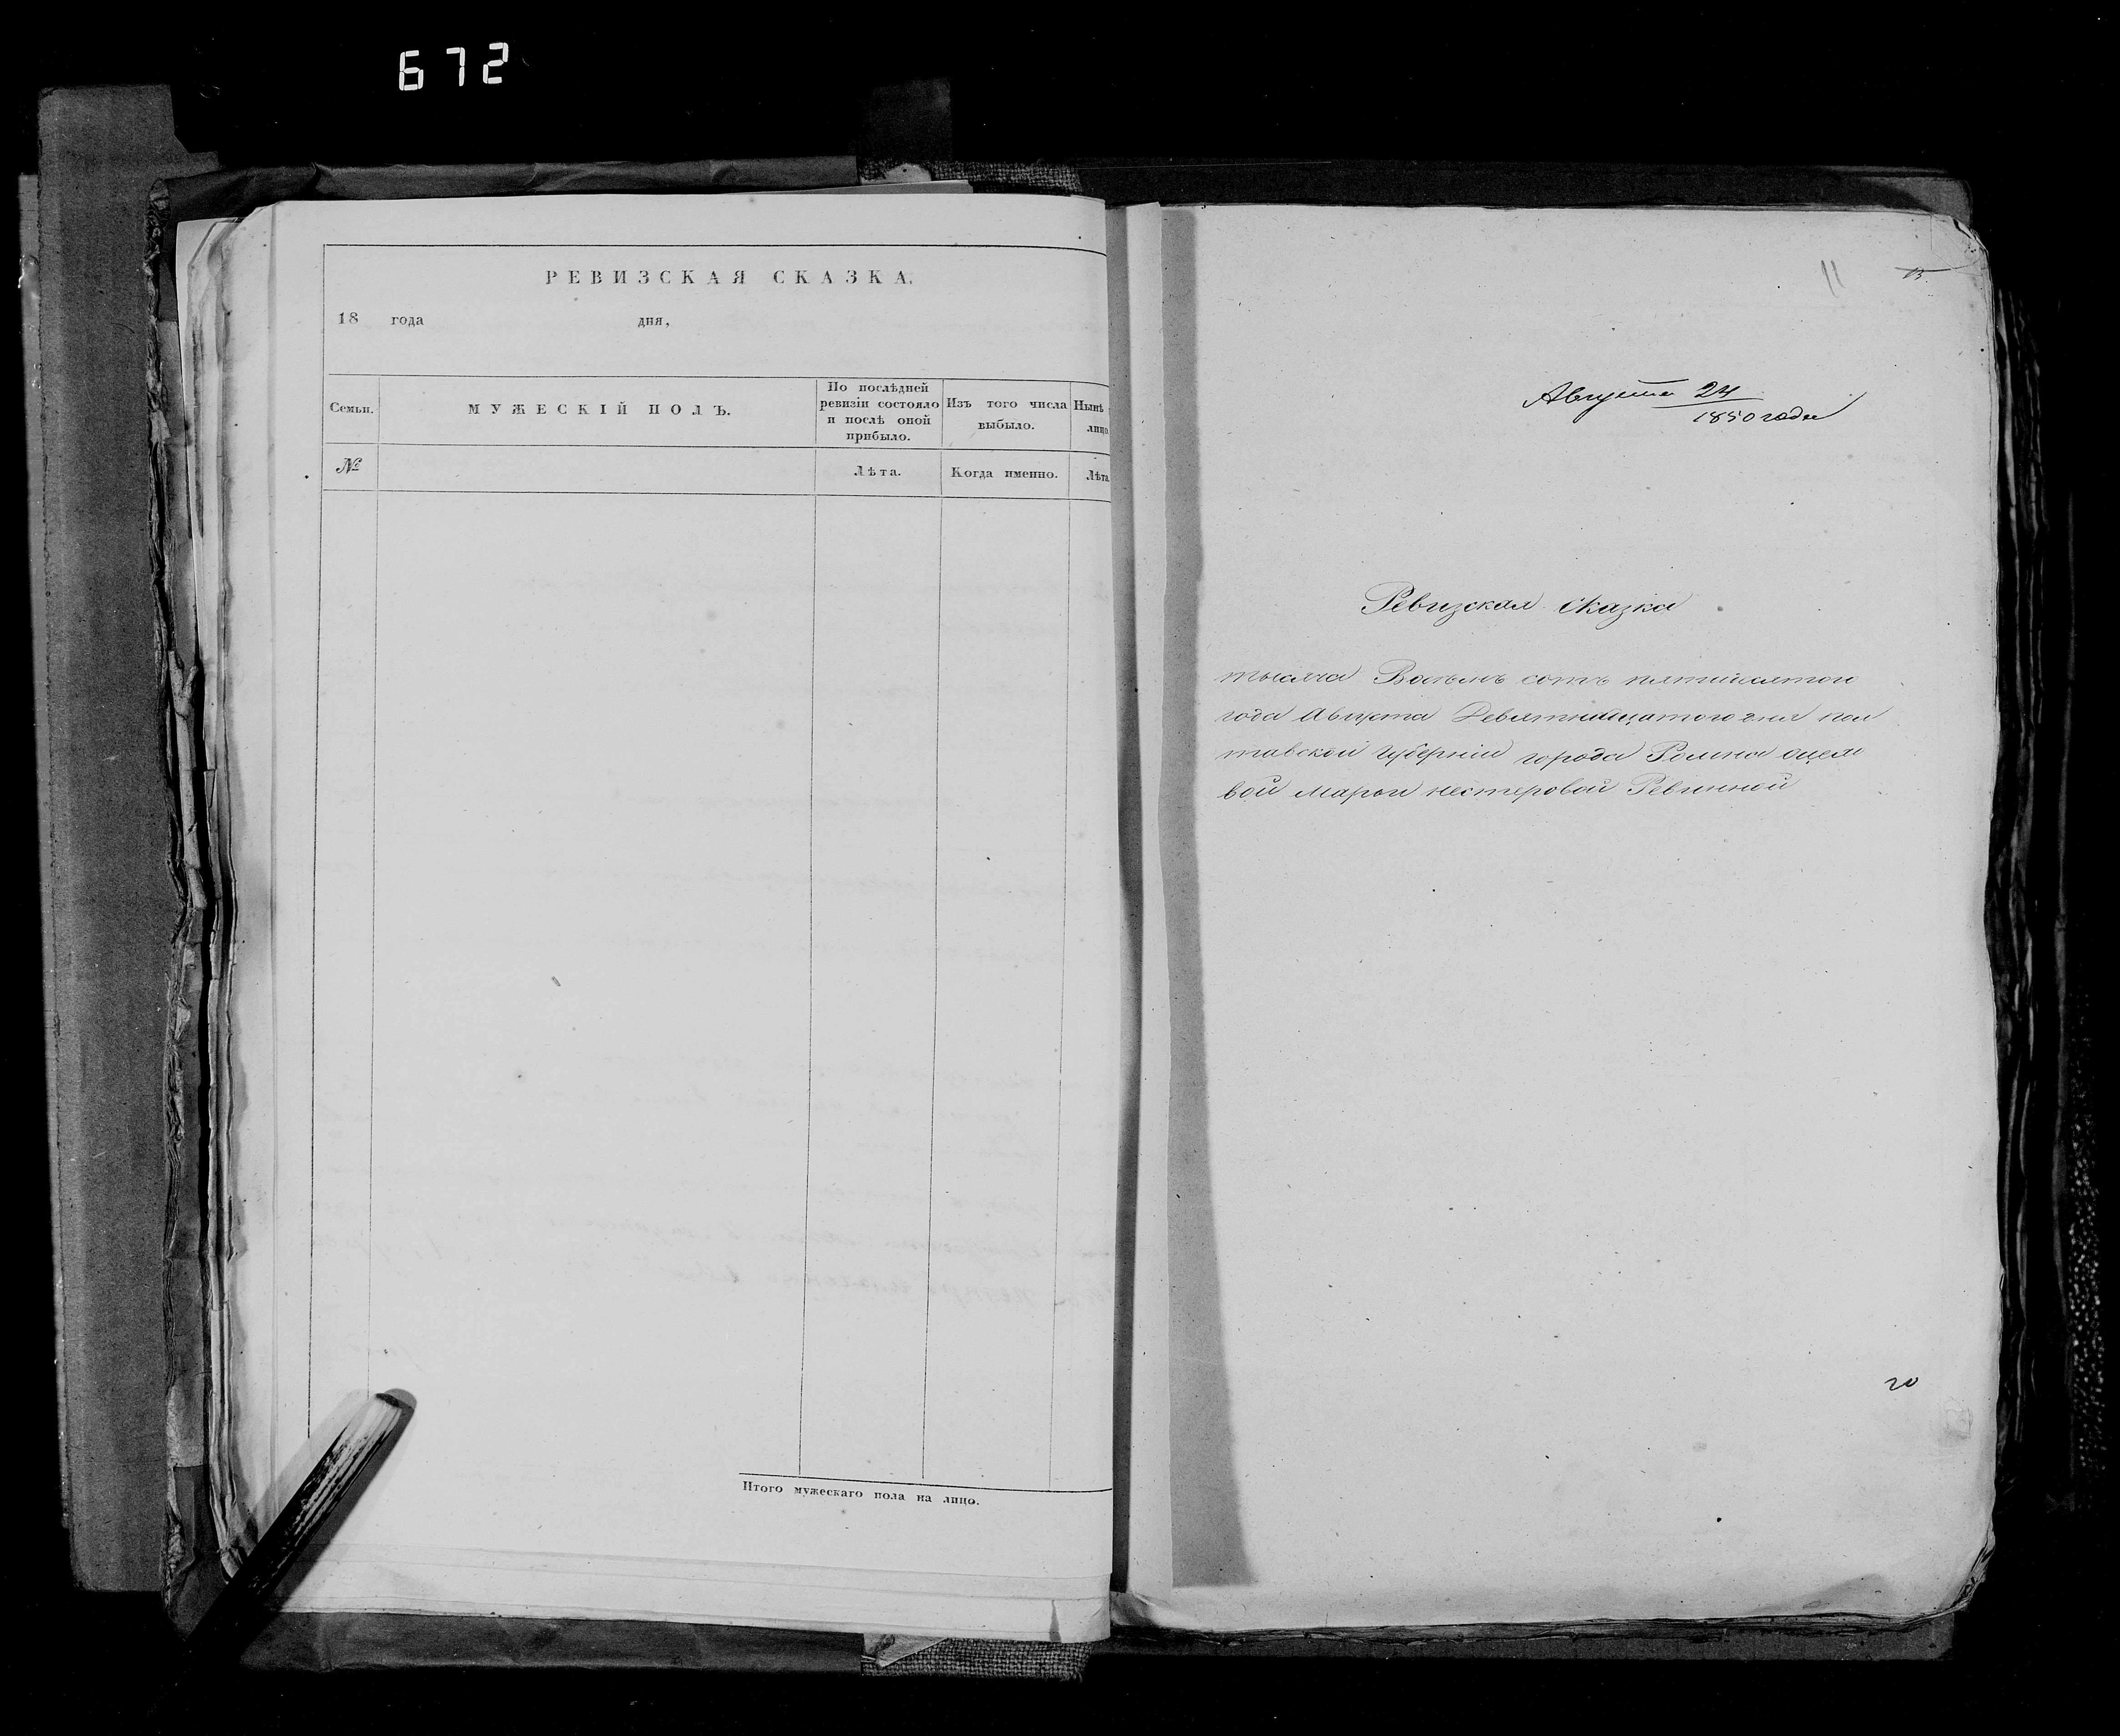 672
РЕВИЗСКАЯ СКАЗКА.
18 года дня,
Семьи.
МУЖЕСКІЙ ПОЛЪ.
По послѣдней
ревизіи состояло
и послѣ оной
прибыло.
Изъ того числа
выбыло.
Нынѣ
лицо.
№
Лѣта.
Когда именно.
Лѣта
Итого мужескаго пола на лицо.
11
13.
Августа 24
1850 года
Ревизская сказка
тысяча Восемь сотъ пятидесятого
года Августа Девятнадцатого дня пол
тавской Губерніи города Ромна
вой Марьи нестеровой Ревинной
20